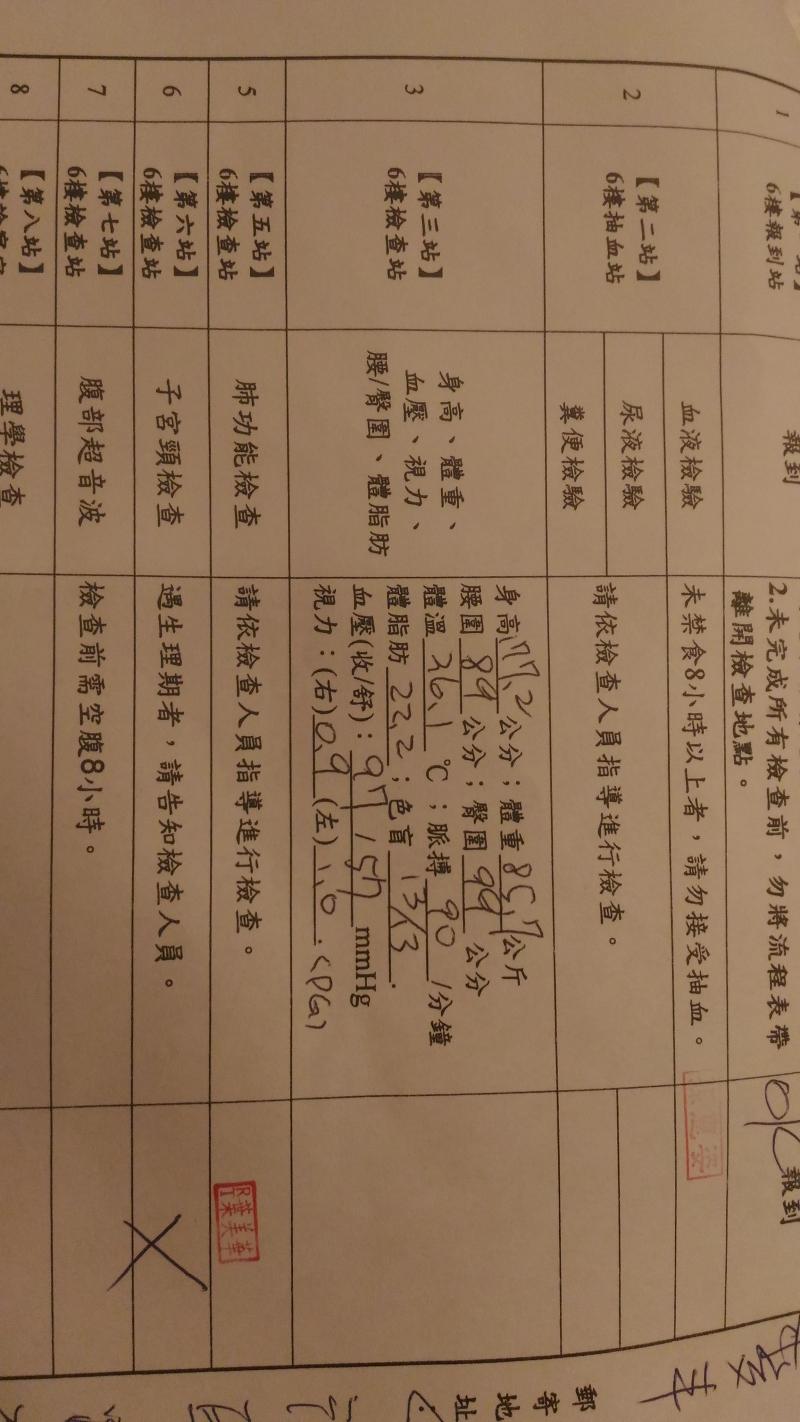 1
6樓報到站
報到
2.未完成所有檢查前，勿將流程表帶
離開檢查地點。
OK 報到
2
【第二站】
6樓抽血站
血液檢驗
尿液檢驗
糞便檢驗
未禁食8小時以上者，請勿接受抽血。
請依檢查人員指導進行檢查。
3
【第三站】
6樓檢查站
身高、體重、
血壓、視力、
腰/臀圍、體脂肪
身高177.2公分；體重85.7公斤
腰圍 89 公分；臀圍 99 公分
體溫 36.1 ℃；脈搏 90 /分鐘
體脂肪 22.2；色盲 13/13.
血壓(收/舒)：97/57 mmHg
視力：(右)0.9(左)1.0.
5
【第五站】
6樓檢查站
肺功能檢查
請依檢查人員指導進行檢查。
6
【第六站】
6樓檢查站
子宮頸檢查
遇生理期者，請告知檢查人員。
7
【第七站】
6樓檢查站
腹部超音波
檢查前需空腹8小時。
8
【第八站】
理學檢查
郵寄地址